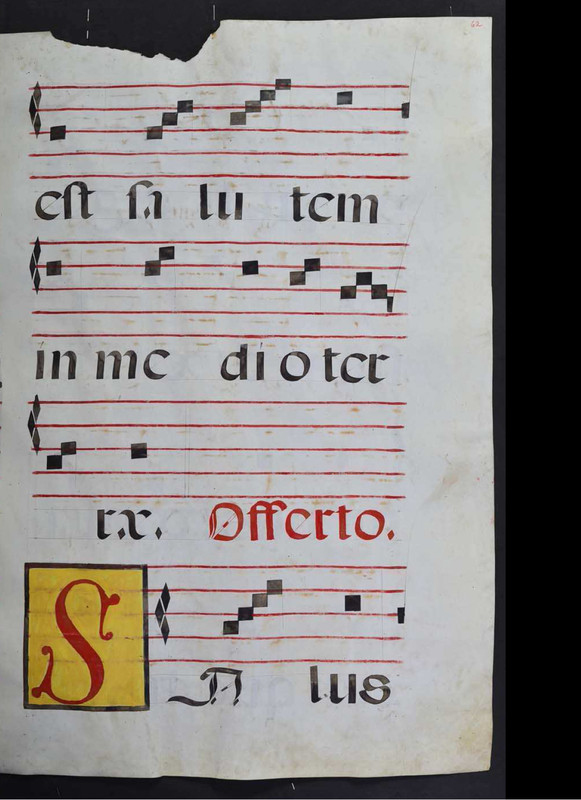 62
est sa lu tem
in me di o ter
rx. Offerto.
SA lus